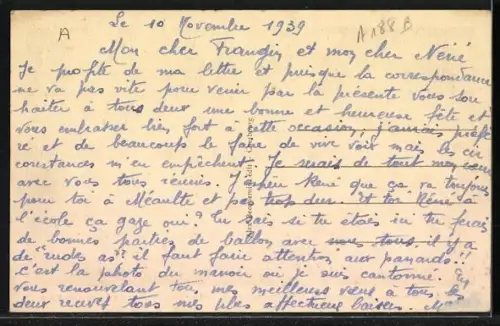 Le 10 Novembre 1939
A
A188B
Mon cher Frangin et mon cher Néné
Je profite de ma lettre et puisque la correspondance
ne va pas vite pour venir par la présente vous sou
haiter à tous deux une bonne et heureuse fête et
vous embrasser bien fort à cette occasion, j'aurais préfé
ré et de beaucoup le faire de vive voix mais les cir
constances m'en empêchent. Je suis de tout mon cœur
avec vous tous réunis. J'espère René que ça va toujours
pour toi à Méaulte et pas trop dur. Et toi Néné à
l'école ça gaze oui? Tu sais si tu étais ici tu ferais
de bonnes parties de ballon avec nous tous, il y a
de "rudes as" il faut faire attention aux panards!!
c'est la photo du manoir où je suis cantonné. En
vous renouvelant tous mes meilleurs vœux à tous les
deux recevez tous mes plus affectueux baisers.